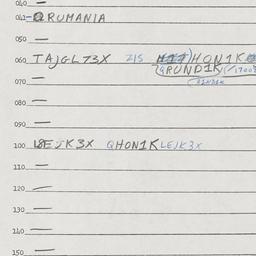 040 —
041 - RUMANIA
050 —
060 TAJGLT3X ZIS HON1K
GRUND1K (1700
070 —
080 —
090 —
100 LEJK3X QHON1K LEJK3X
110 —
120 —
130 —
140 —
150 —